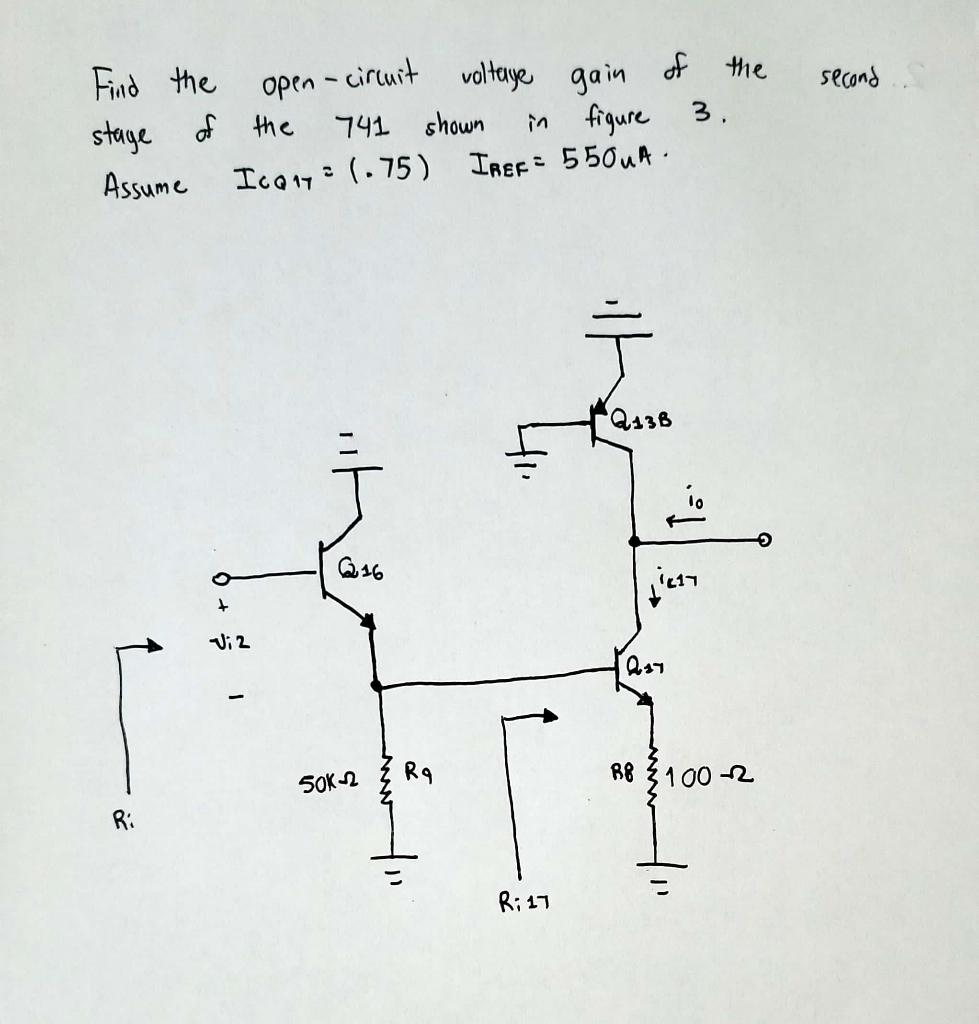 Find the open-circuit voltage gain of the second
stage of the 741 shown in figure 3.
Assume ICQ17 = (.75) IREF = 550uA.
Q13B
io
Q16
ic17
+
Vi2
-
Q17
50K Ω R9
R8 100 Ω
Ri
Ri17